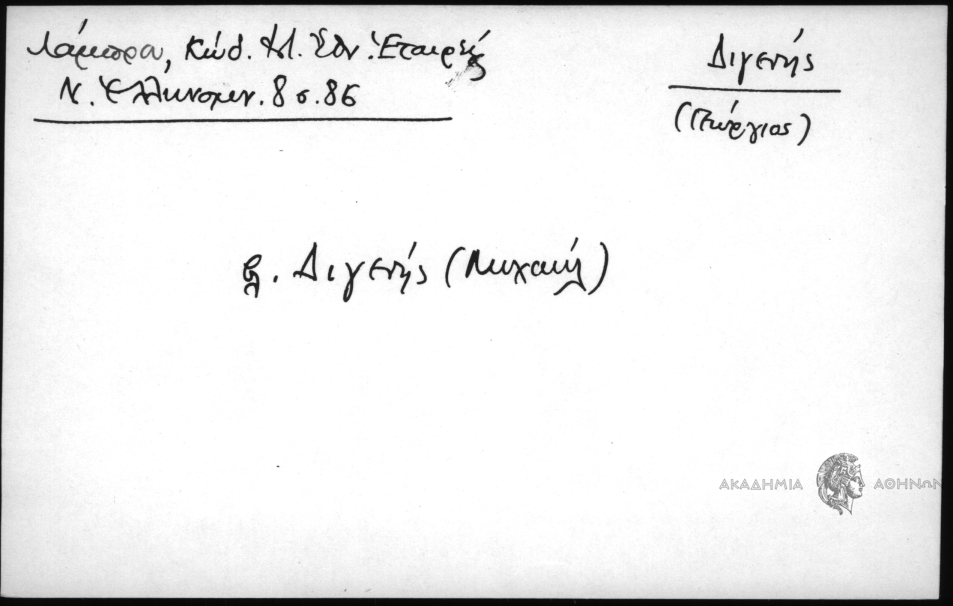 Λάμπρου, Κώδ. Ἱστ. Ἐθν. Ἑταιρεί
Ν. Ἑλληνομν. 8 σ. 86
Διγενής
(Γεώργιος)
βλ. Διγενής (Μιχαήλ)
ΑΚΑΔΗΜΙΑ ΑΘΗΝΩΝ